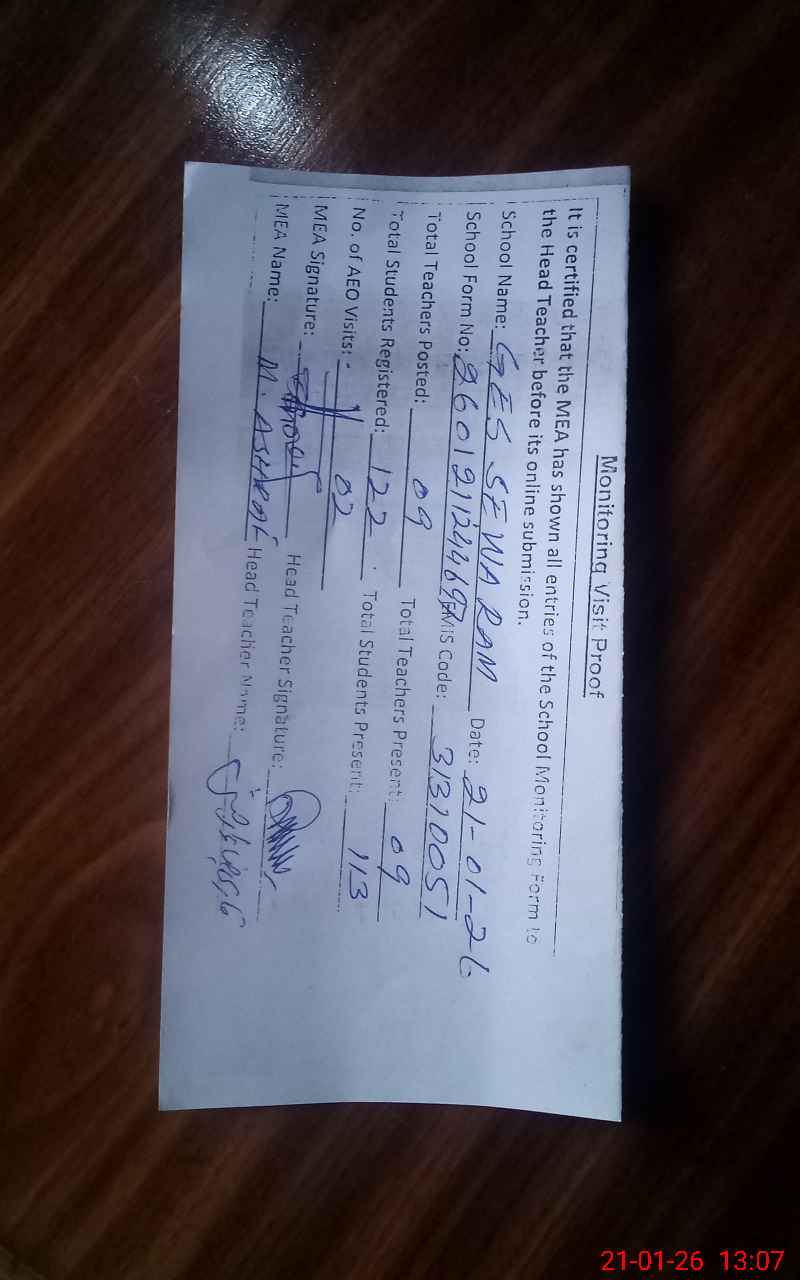 Monitoring Visit Proof
It is certified that the MEA has shown all entries of the School Monitoring Form to
the Head Teacher before its online submission.
School Name: GES SEWA RAM Date: 21-01-26
School Form No: EMIS Code: 31310051
Total Teachers Posted: 09 Total Teachers Present: 09
Total Students Registered: 122 Total Students Present: 113
No. of AEO Visits: 02
MEA Signature: Head Teacher Signature:
MEA Name: M. ASHRAF Head Teacher Name:
21-01-26 13:07